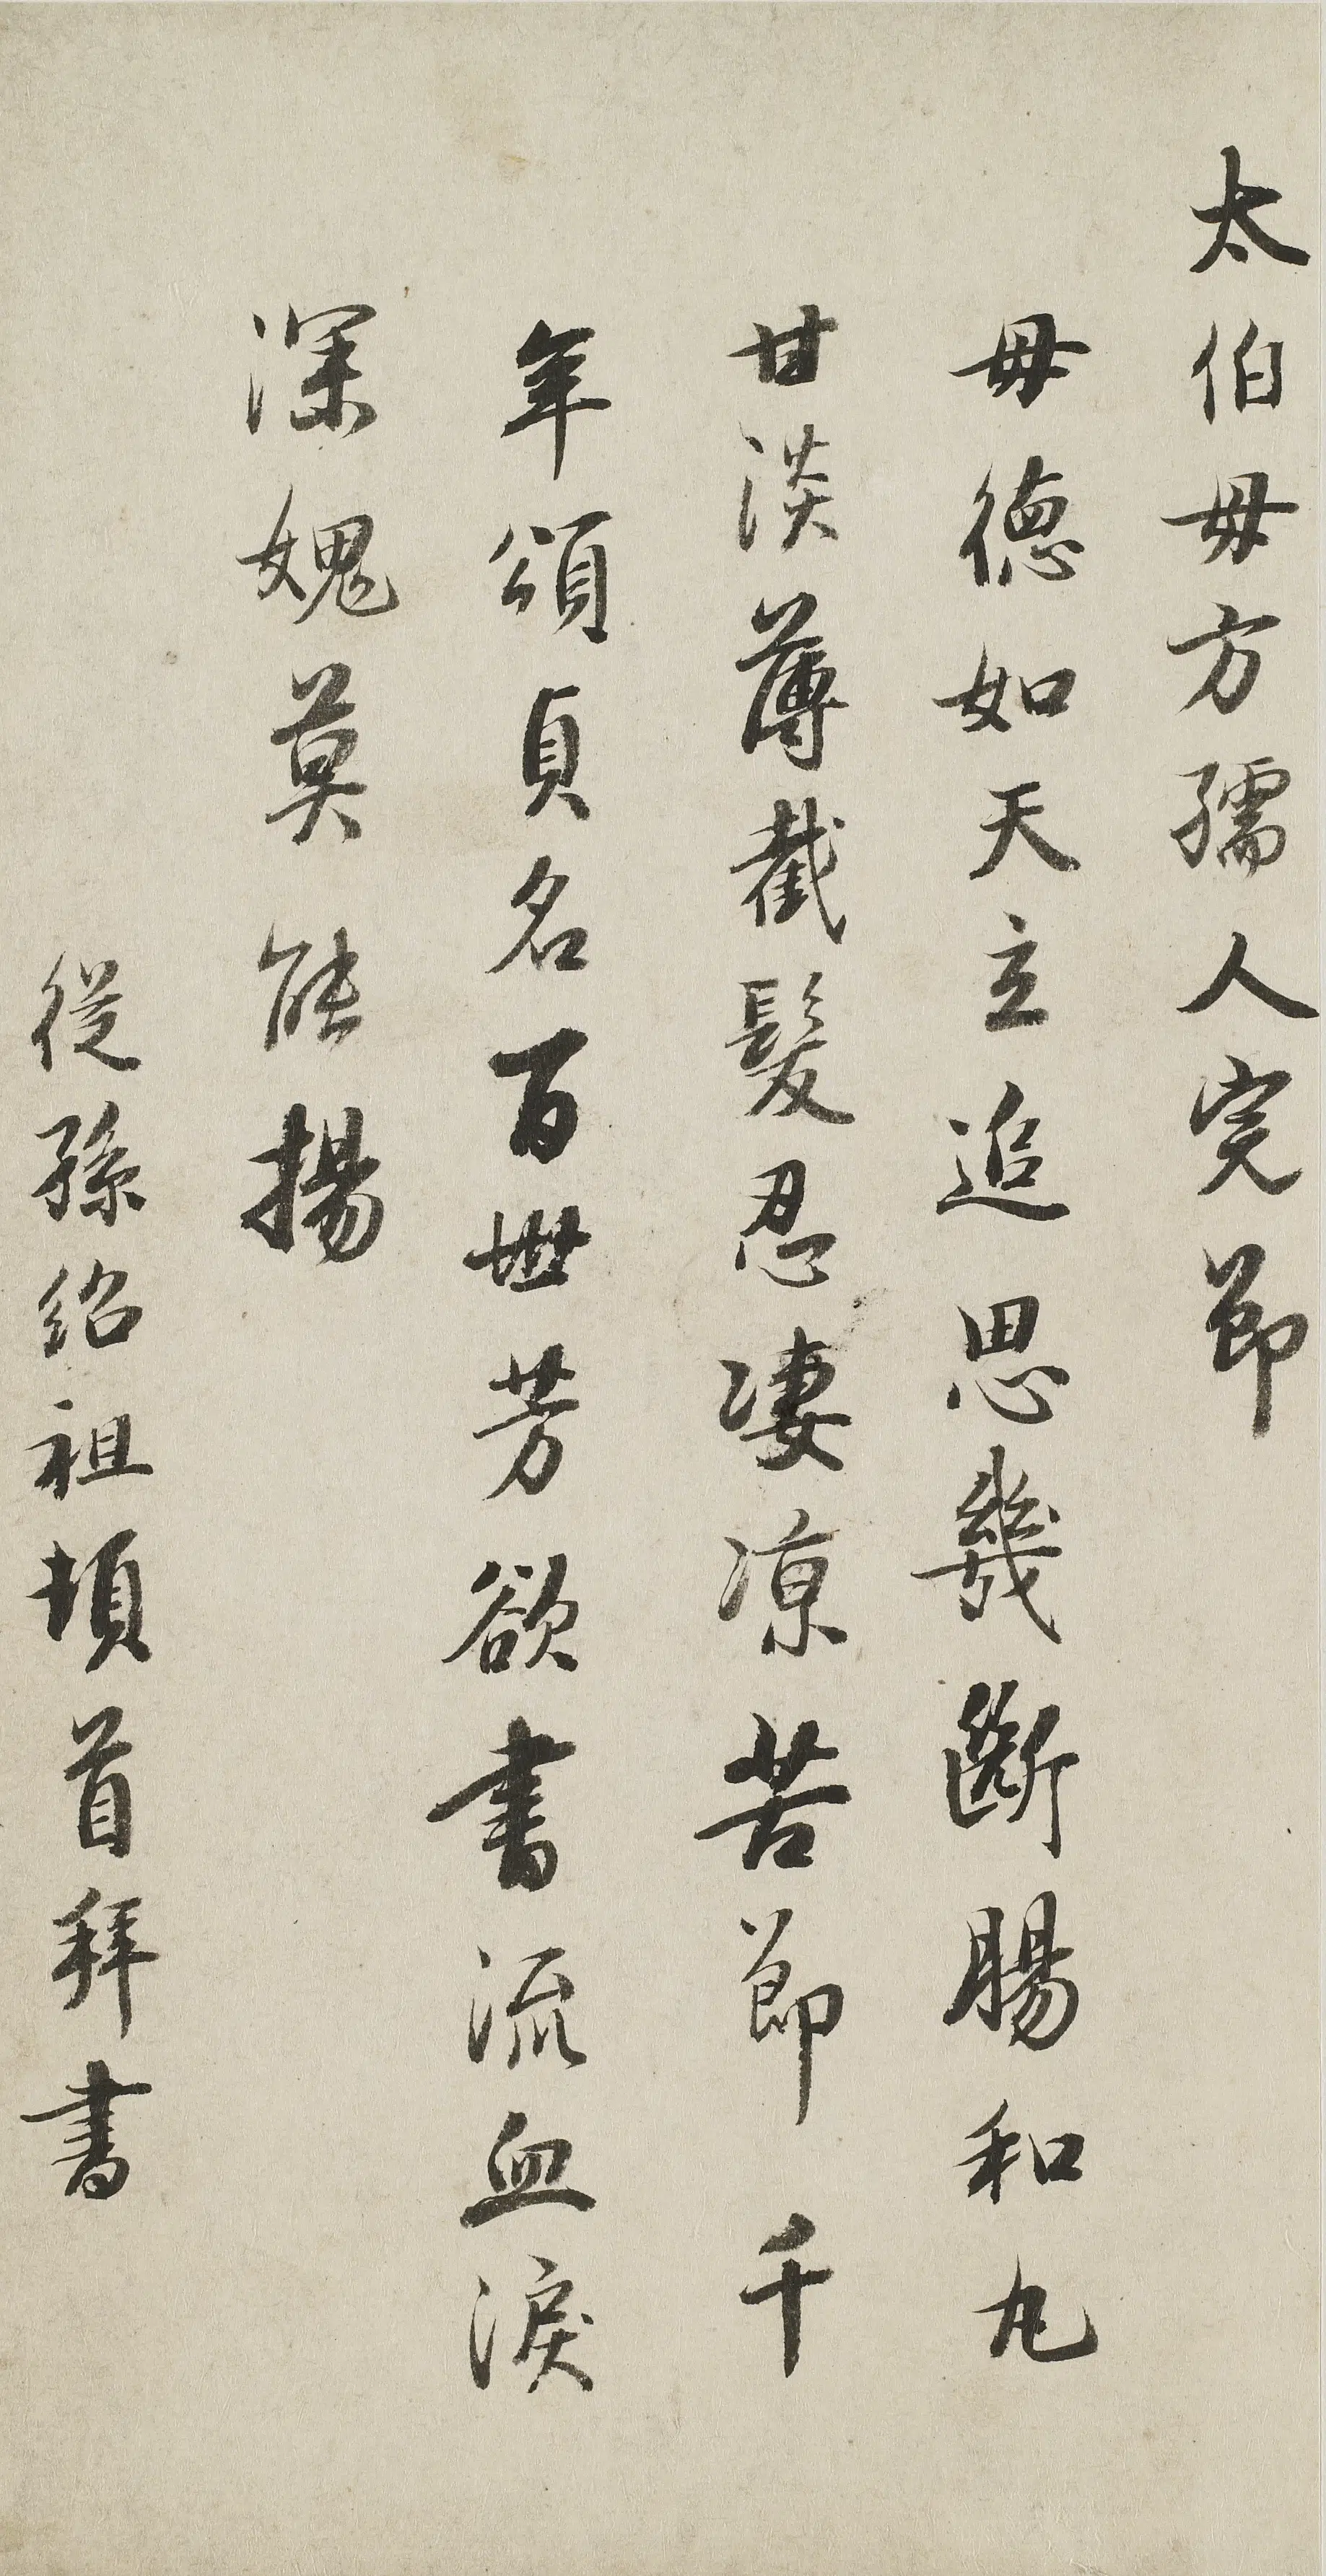 太伯母方孺人完節
母德如天立追思幾斷腸和丸
甘淡薄截髮忍凄涼苦節千
年頌貞名百世芳欲書流血淚
深媿莫能揚
從孫紹祖頓首拜書